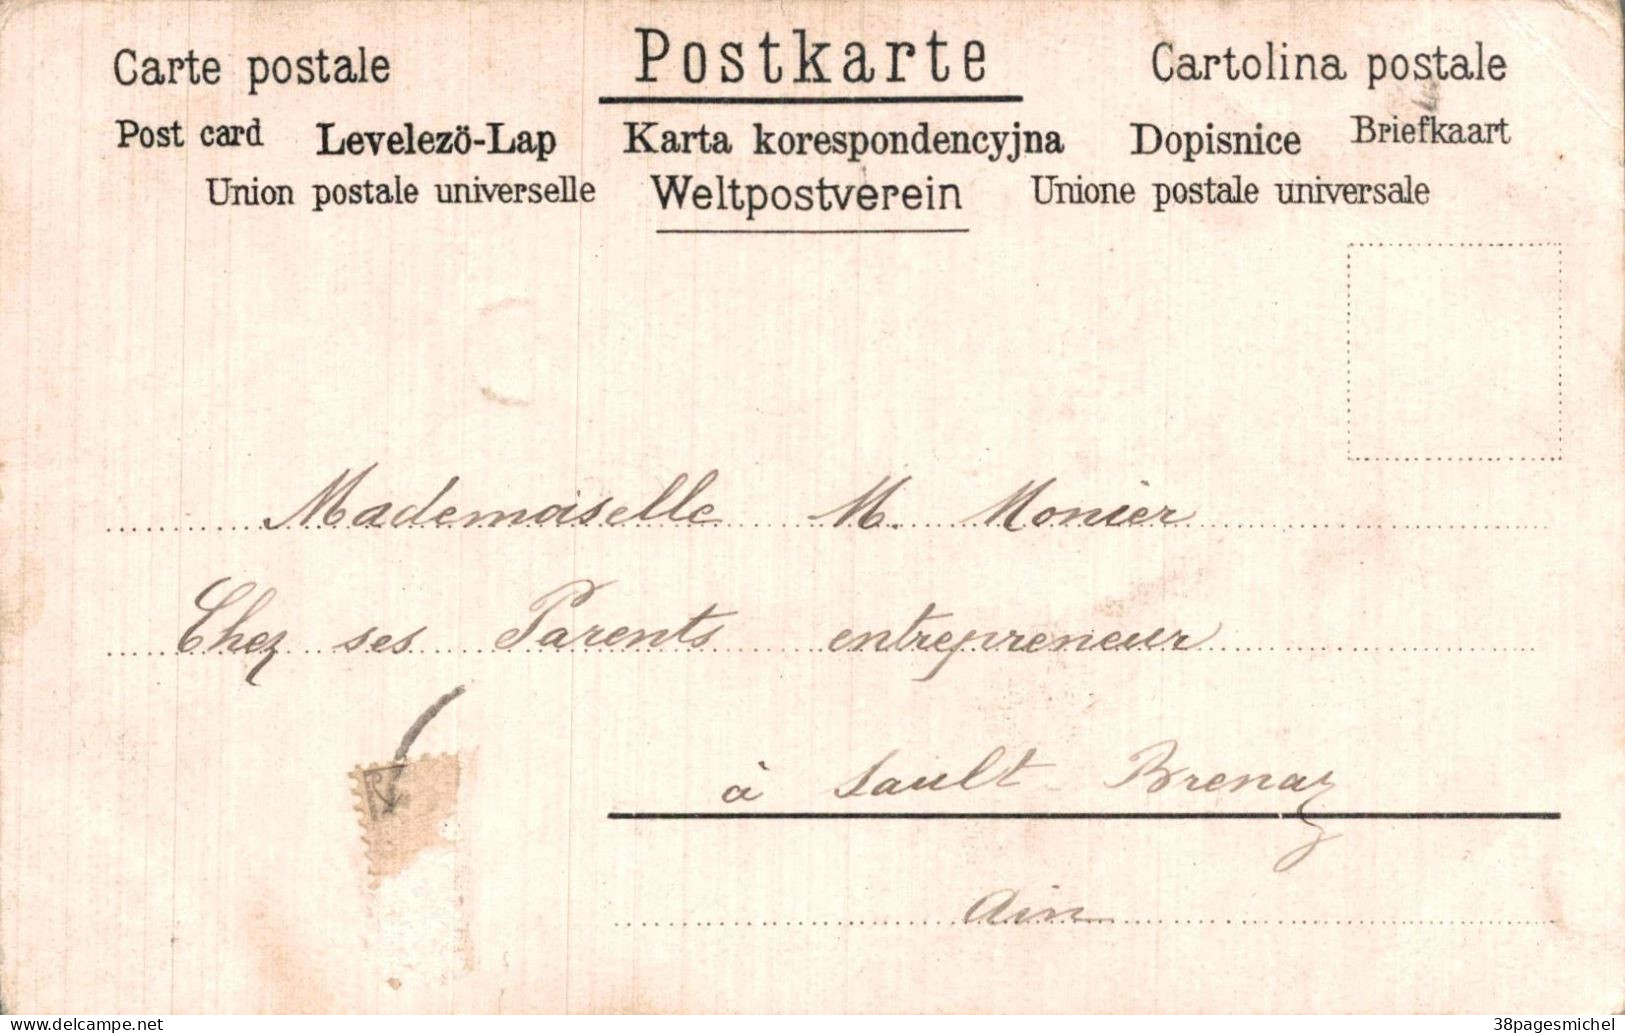 Carte postale Postkarte Cartolina postale
Post card Levelezö-Lap Karta korespondencyjna Dopisnice Briefkaart
Union postale universelle Weltpostverein Unione postale universale
Mademoiselle M. Monier
Chez ses Parents entrepreneur
à Sault-Brenaz
Ain
delcampe.net
38pagesmichel